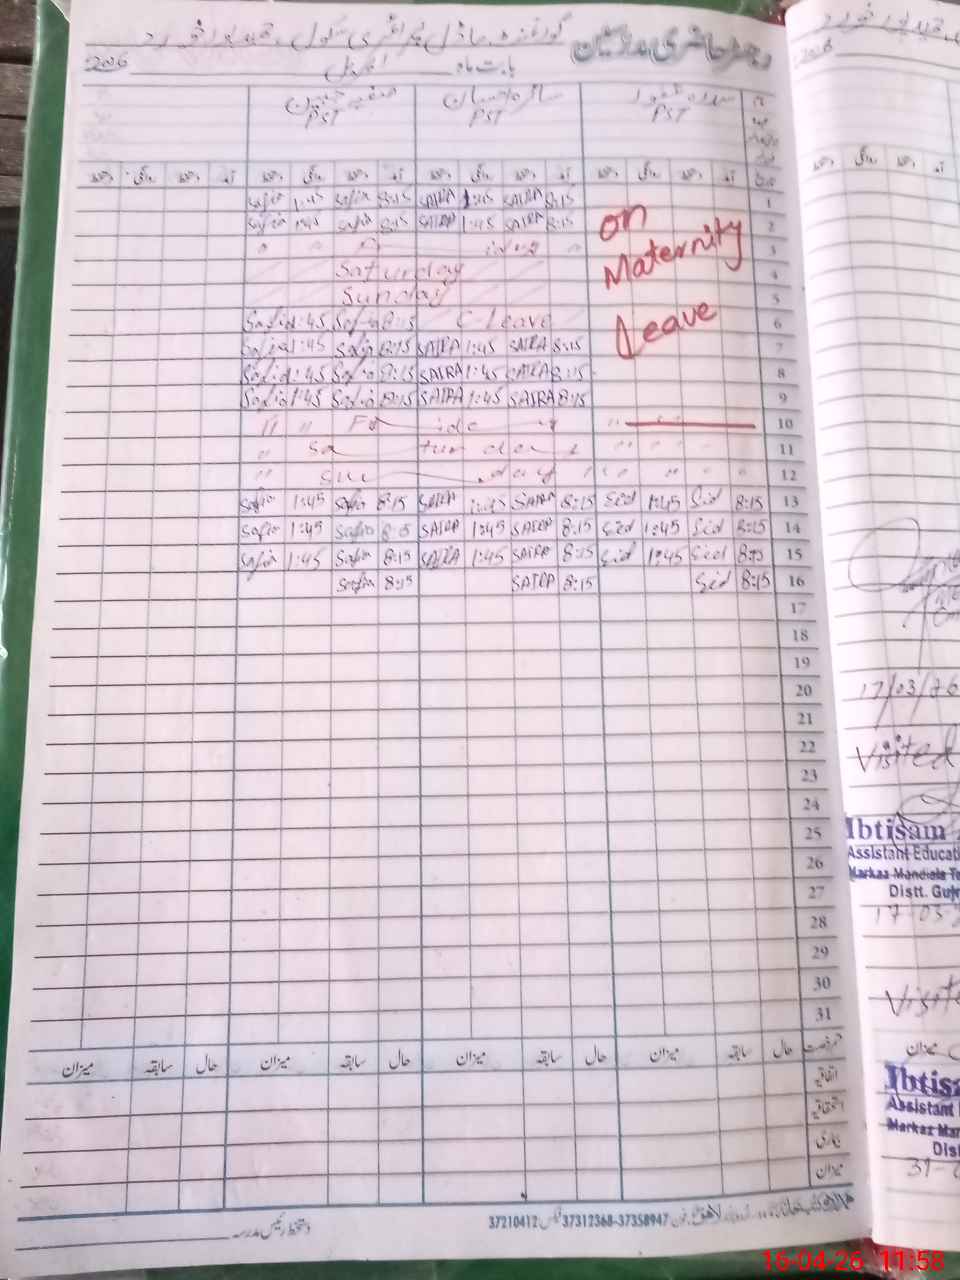 رجسٹر حاضری مدرسین
گورنمنٹ ماڈل پرائمری سکول
بابت ماہ اپریل 2026
PST PST PST
آمد دستخط روانگی دستخط آمد دستخط روانگی دستخط آمد دستخط روانگی دستخط آمد دستخط روانگی دستخط
1 8:15 SAIRA 1:45 SAIRA 8:15 Safia 1:45 Safia
2 8:15 SAIRA 1:45 SAIRA 8:15 Safia 1:45 Safia
on Maternity Leave
3 " iday " "
4 Saturday
5 Sunday
6 C-Leave 8:15 Safia 1:45 Safia
7 8:15 SAIRA 1:45 SAIRA 8:15 Safia 1:45 Safia
8 8:15 SAIRA 1:45 SAIRA 8:15 Safia 1:45 Safia
9 8:15 SAIRA 1:45 SAIRA 8:15 Safia 1:45 Safia
10 " Fr ida y " "
11 " Sa tur day " " "
12 " Sun day " " " "
13 8:15 Sid 1:45 Sid 8:15 SAIRA 1:45 SAIRA 8:15 Safia 1:45 Safia
14 8:15 Sid 1:45 Sid 8:15 SAIRA 1:45 SAIRA 8:15 Safia 1:45 Safia
15 8:15 Sid 1:45 Sid 8:15 SAIRA 1:45 SAIRA 8:15 Safia 1:45 Safia
16 8:15 Sid 8:15 SAIRA 8:15 Safia
17
18
19
20
21
22
23
24
25
26
27
28
29
30
31
حال سابقہ میزان حال سابقہ میزان حال سابقہ میزان حال سابقہ میزان
اتفاقیہ
استحقاقیہ
بیماری
میزان
37210412 فیکس 37312368-37358947
دستخط رئیس مدرسہ
17/03/26
Visited
Ibtisam
Assistant Educati
Markaz Mandiala Te
Distt. Guj
17-03-2
Visite
میزان
Ibtisa
Assistant
Markaz Man
Dis
31-
16-04-26 11:58